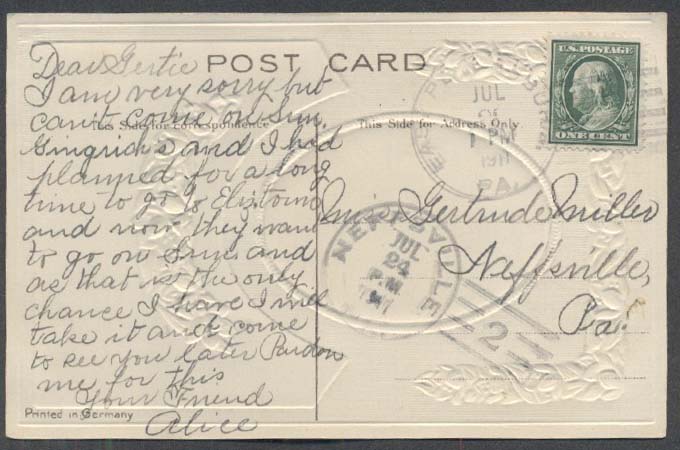 POST CARD
This Side for Correspondence
This Side for Address Only
Dear Gertie
I am very sorry but
can't come on Sun.
Gingrich's and I had
planned for a long
time to go to Eliztown
and now they want
to go on Sun. and
as that is the only
chance I have I will
take it and come
to see you later Pardon
me for this
Your Friend
Alice
Printed in Germany
U.S. POSTAGE
ONE CENT
JUL
1 PM
1911
PA.
Miss Gertrude Miller
Neffsville,
Pa.
NEFFSVILLE
JUL
24
P.M.
2